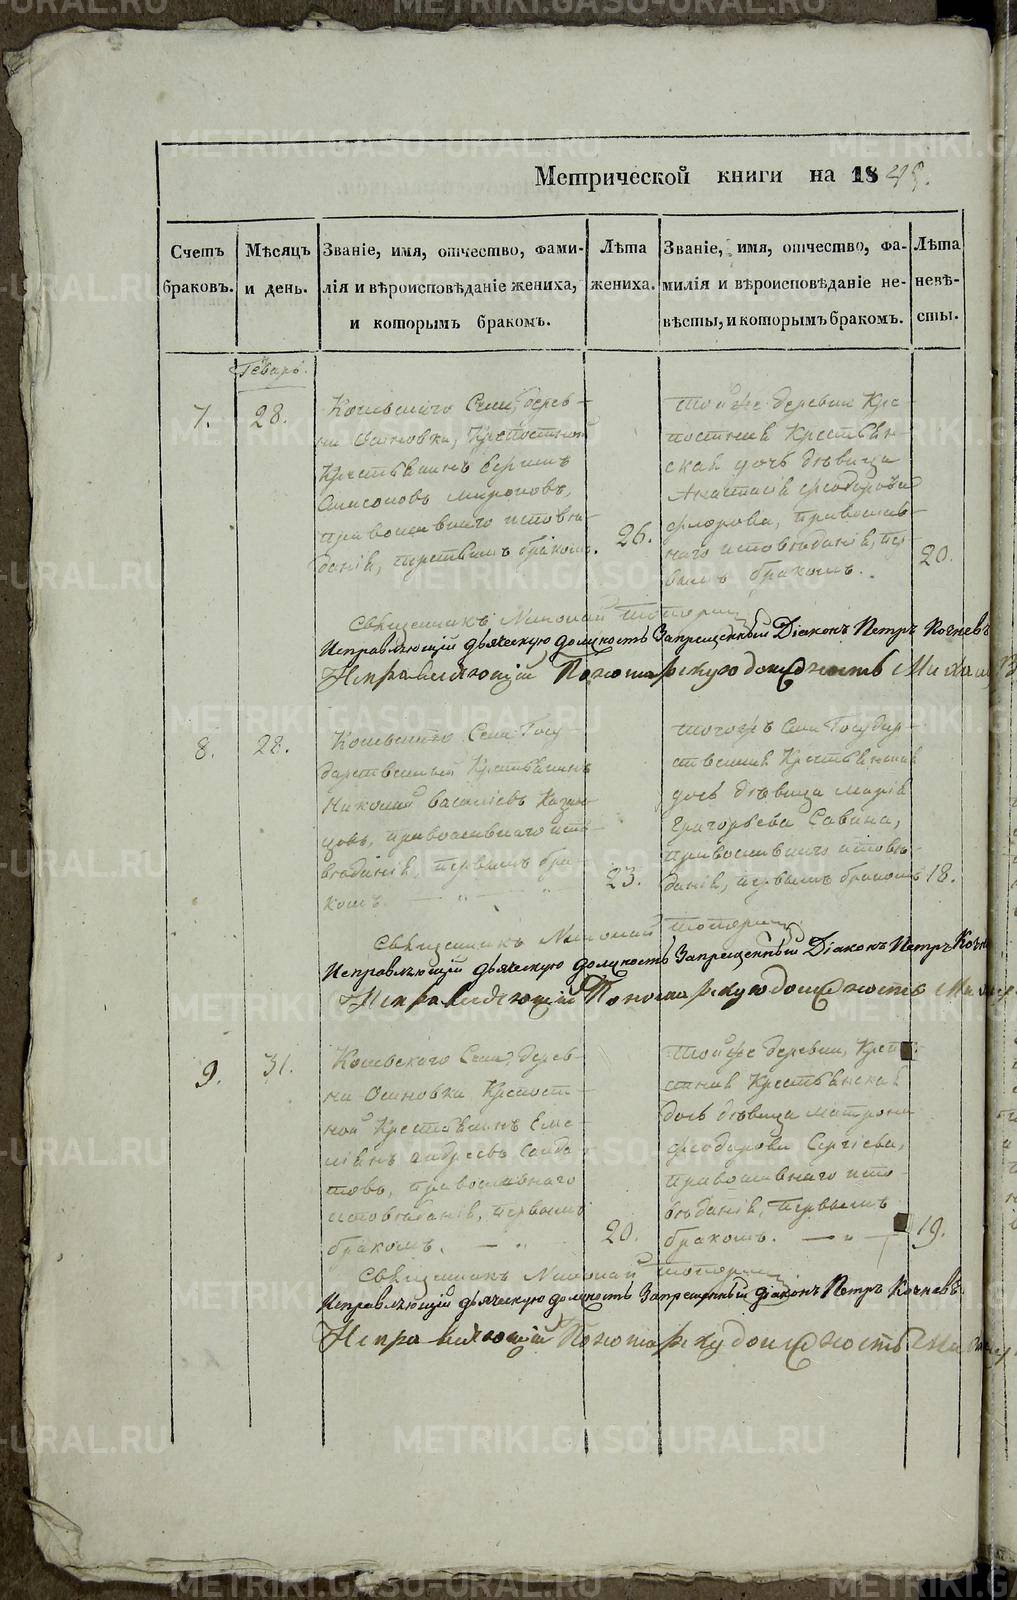 Метрической книги на 1849.
Счетъ браковъ.
Мѣсяцъ и день.
Званіе, имя, отчество, фами-
лія и вѣроисповѣданіе жениха,
и которымъ бракомъ.
Лѣта
жениха.
Званіе, имя, отчество, фа-
милія и вѣроисповѣданіе не-
вѣсты, и которымъ бракомъ.
Лѣта
невѣ-
сты.
7.
28.
Села, дерев-
ни Осиновки, Крепостной
Крестьянинъ
Самсоновъ Мироновъ,
православнаго исповѣ-
данія, первымъ бракомъ.
26.
Той же деревни Кре-
постная Крестьян-
ская дочь дѣвица
Анастасія Феодорова
Флорова, православ-
наго исповѣданія, пер-
вымъ бракомъ.
20.
Священникъ Николай
Исправляющій дьяческую должность Запрещенный Діаконъ Петръ Кочневъ
Исправляющій Пономарскую должность
8.
28.
Села Госу-
дарственный Крестьянинъ
Николай Васильевъ Казан-
цовъ, православнаго испо-
вѣданія, первымъ бра-
комъ.
23.
Тогожъ Села Государ-
ственная Крестьянская
дочь дѣвица Марія
Григорьева Савина,
православнаго исповѣ-
данія, первымъ бракомъ
18.
Священникъ Николай
Исправляющій дьяческую должность Запрещенный Діаконъ Петръ
Исправляющій Пономарскую должность
9.
31.
Села, дерев-
ни Осиновки Крепост-
ной Крестьянинъ Еме-
ліянъ Андреевъ Солда-
товъ, православнаго
исповѣданія, первымъ
бракомъ.
20.
Той же деревни, Креп
стная Крестьянская
дочь дѣвица Матрона
Феодорова Сергіева,
православнаго испо-
вѣданія, первымъ
бракомъ.
19.
Священникъ Николай
Исправляющій дьяческую должность Запрещенный діаконъ Петръ Кочневъ.
Исправляющій Пономарску должность
METRIKI.GASO-URAL.RU